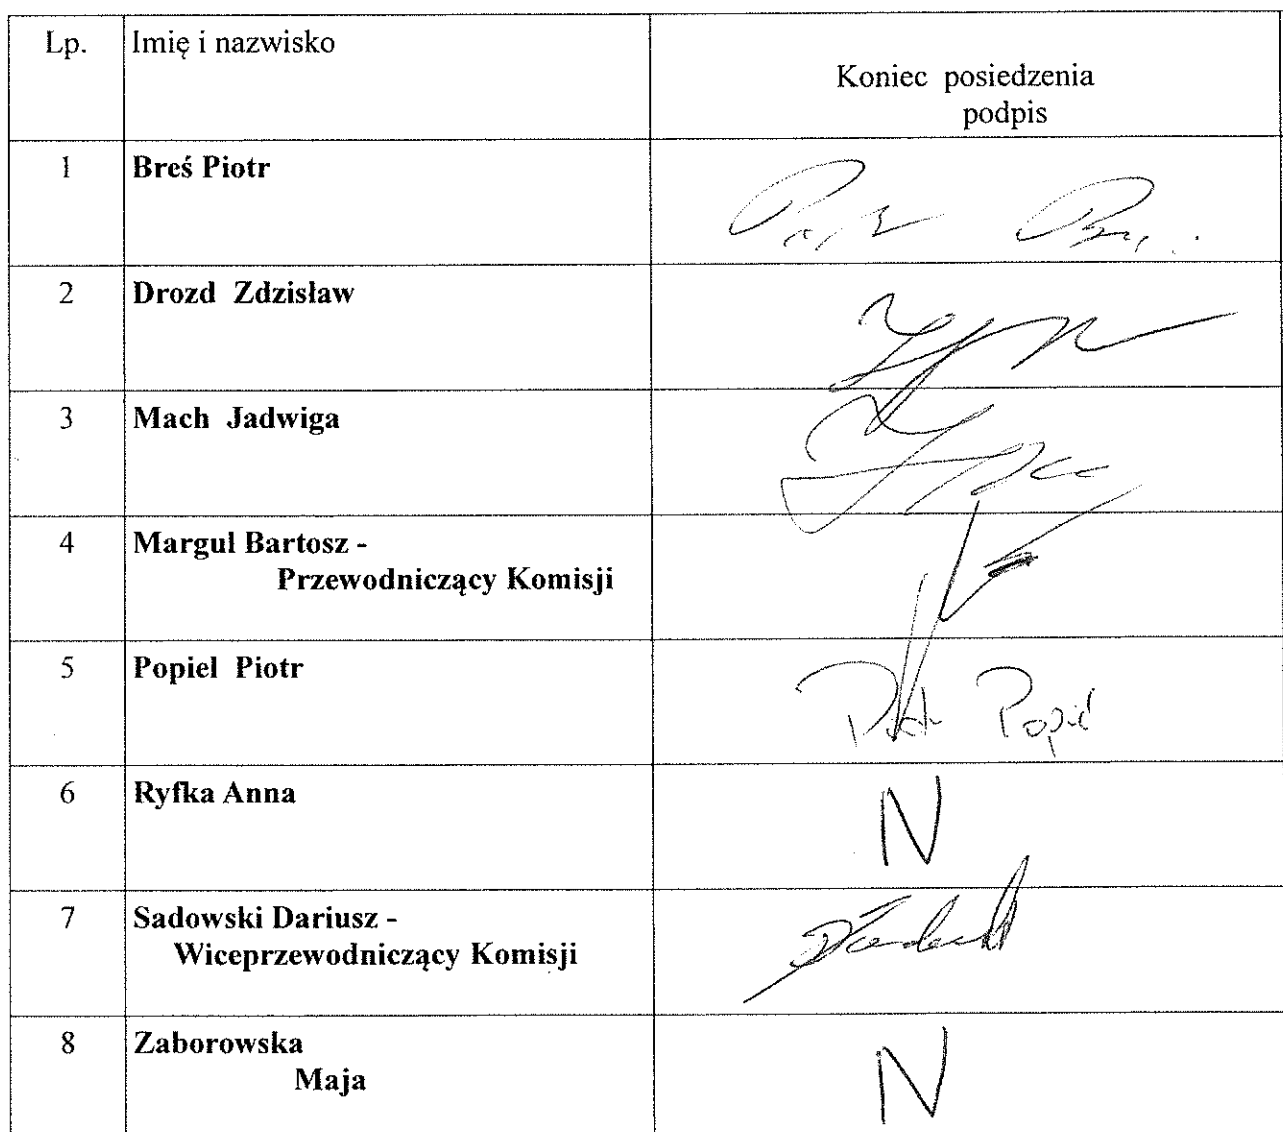 Lp. Imię i nazwisko
Koniec posiedzenia
podpis
1 Breś Piotr
2 Drozd Zdzisław
3 Mach Jadwiga
4 Margul Bartosz -
Przewodniczący Komisji
5 Popiel Piotr
Piotr Popiel
6 Ryfka Anna N
7 Sadowski Dariusz -
Wiceprzewodniczący Komisji
8 Zaborowska
Maja
N